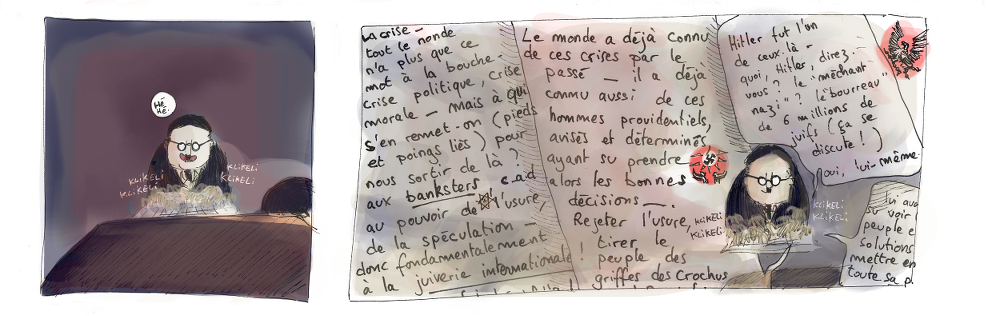 Hé
Hé.
KLIKELI
KLIKELI
KLIKELI
KLIKELI
La crise –
tout le monde
n'a plus que ce
mot à la bouche –
crise politique, crise
morale – mais à qui
s'en remet-on (pieds
et poings liés) pour
nous sortir de là ?
aux banksters c.a.d
au pouvoir de l'usure
de la spéculation –
donc fondamentalement
à la juiverie internationale !
Le monde a déjà connu
de ces crises par le
passé – il a déjà
connu aussi de ces
hommes providentiels,
avisés et déterminés
ayant su prendre
alors les bonnes
décisions –.
Rejeter l'usure,
tirer le
peuple des
griffes des crochus
KLIKELI
KLIKELI
Hitler fut l'un
de ceux-là –
quoi, Hitler, direz-
vous ? le "méchant
nazi" ? le "bourreau"
de 6 millions de
juifs (ça se
discute !)
Oui, lui-même
KLIKELI
KLIKELI
su voir
peuple e
solutions
mettre en
toute sa p.